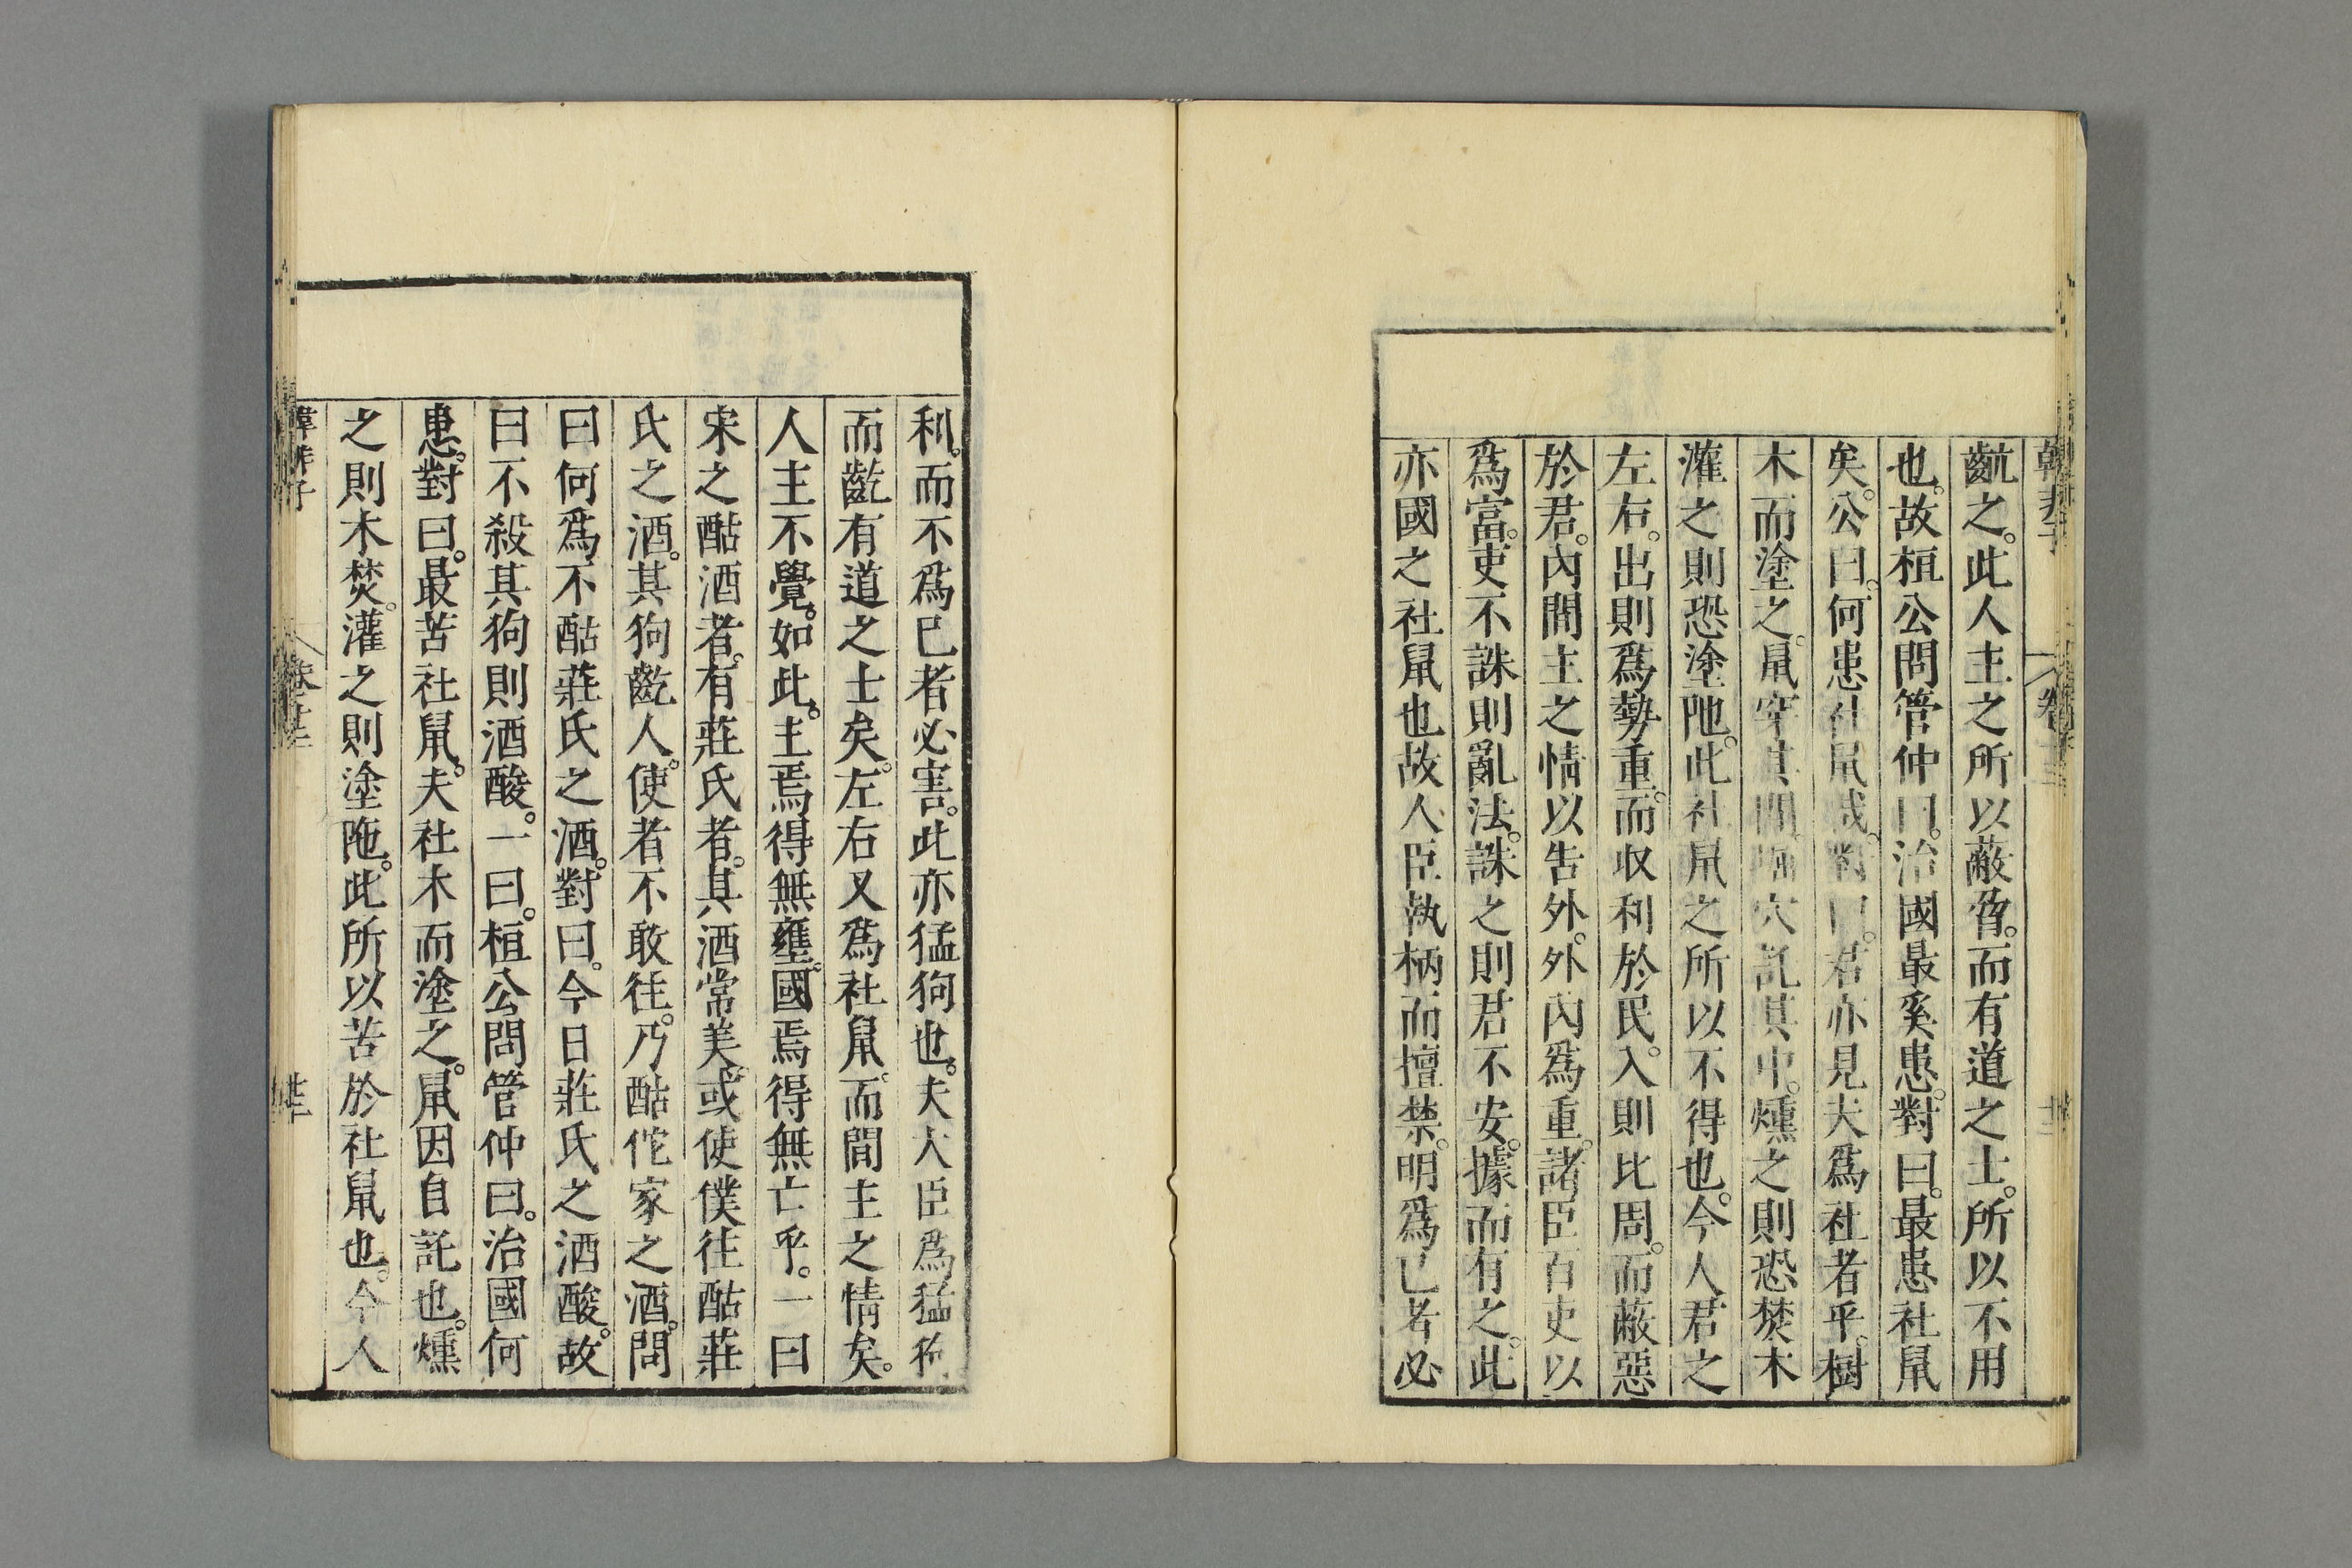 韓非子 卷十三
齕之。此人主之所以蔽脅。而有道之士。所以不用
也。故桓公問管仲曰。治國最奚患。對曰。最患社鼠
矣。公曰。何患社鼠哉。對曰。君亦見夫爲社者乎。樹
木而塗之。鼠穿其間。掘穴託其中。燻之則恐焚木
灌之則恐塗阤。此社鼠之所以不得也。今人君之
左右。出則爲勢重。而收利於民。入則比周。而蔽惡
於君。內間主之情以告外。外內爲重。諸臣百吏以
爲富。吏不誅則亂法。誅之則君不安。據而有之。此
亦國之社鼠也故人臣執柄而擅禁。明爲己者必
利。而不爲已者必害。此亦猛狗也。夫大臣爲猛狗
而齕有道之士矣。左右又爲社鼠。而間主之情矣。
人主不覺。如此。主焉得無壅。國焉得無亡乎。一曰
宋之酤酒者。有莊氏者。其酒常美。或使僕往酤莊
氏之酒。其狗齕人。使者不敢往。乃酤佗家之酒。問
曰何爲不酤莊氏之酒。對曰。今日莊氏之酒酸。故
曰不殺其狗則酒酸。一曰。桓公問管仲曰。治國何
患。對曰。最苦社鼠。夫社木而塗之。鼠因自託也。燻
之則木焚。灌之則塗阤。此所以苦於社鼠也。今人
韓非子 卷十三